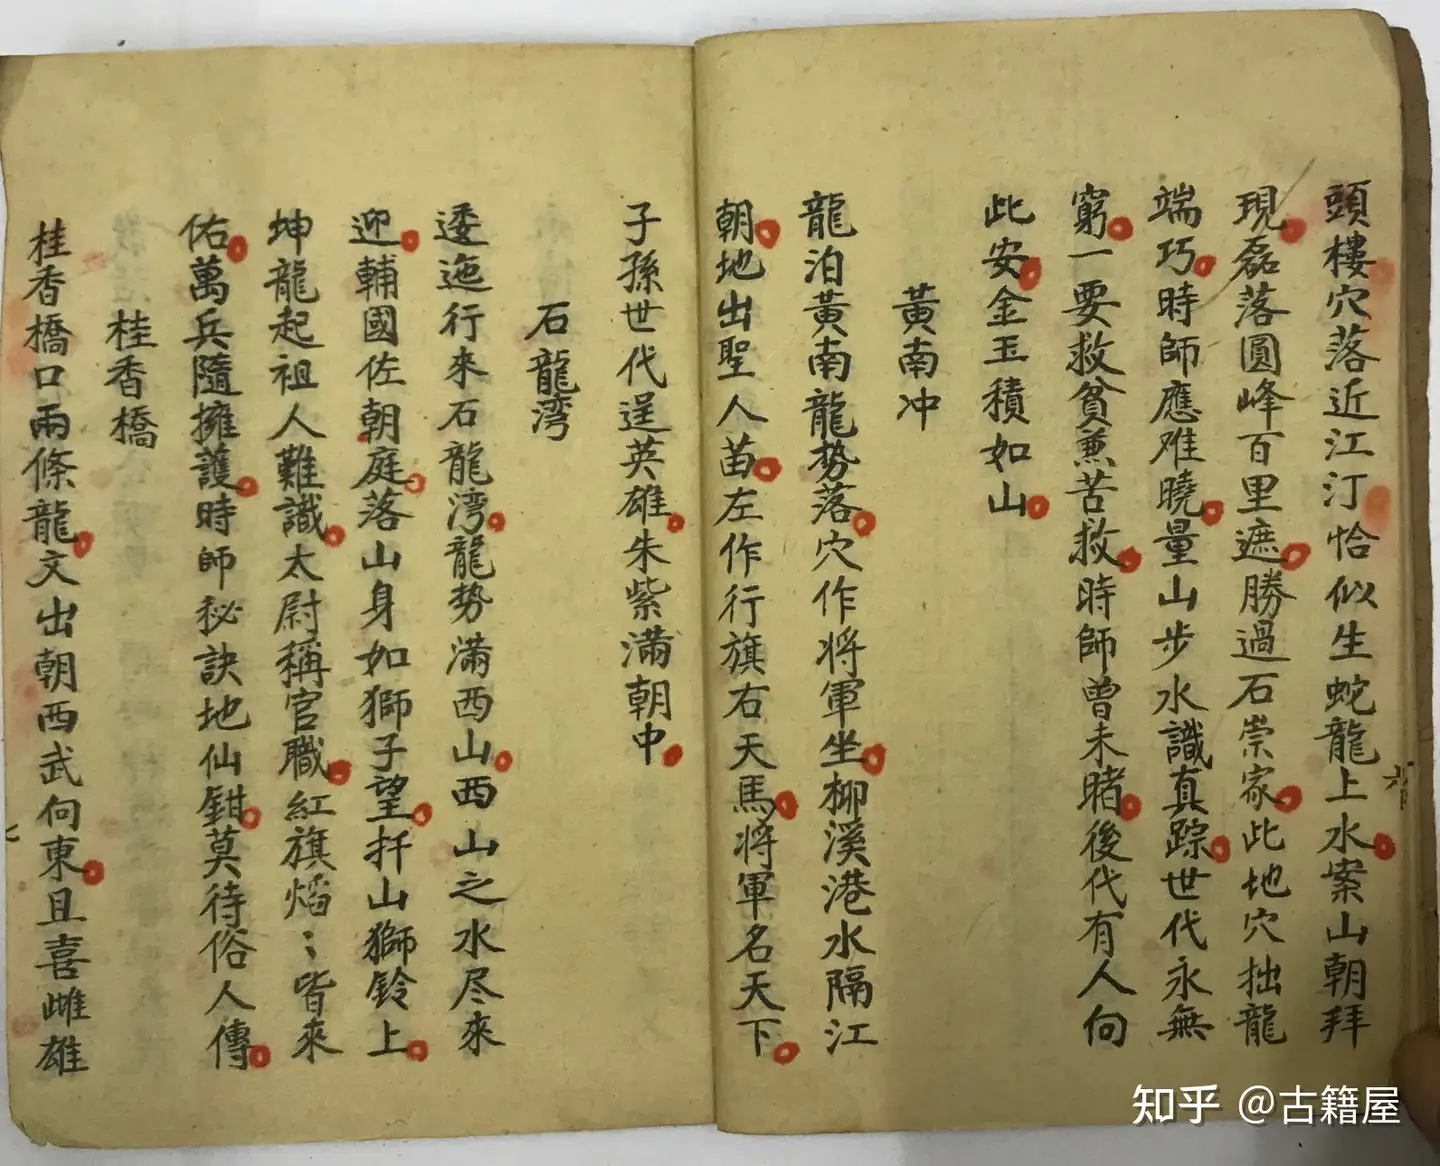 頭樓穴落近江汀恰似生蛇龍上水案山朝拜
現磊落圓峰百里遮勝過石崇家此地穴拙龍
端巧時師應难曉量山步水識真踪世代永無
窮一要救貧兼苦救時師曾未睹後代有人向
此安金玉積如山
黃南冲
龍泊黃南龍势落穴作将軍坐柳溪港水隔江
朝地出聖人苗左作行旗右天馬将軍名天下
子孫世代逞英雄朱紫满朝中
石龍湾
逶迤行來石龍湾龍势满西山西山之水尽來
迎輔國佐朝庭落山身如獅子望扦山獅鈴上
坤龍起祖人難識太尉稱官職紅旗焰〻皆來
佑萬兵隨擁護時師秘訣地仙鉗莫待俗人傳
桂香橋
桂香橋口兩條龍文出朝西武向東且喜雌雄
六
七
知乎 @古籍屋